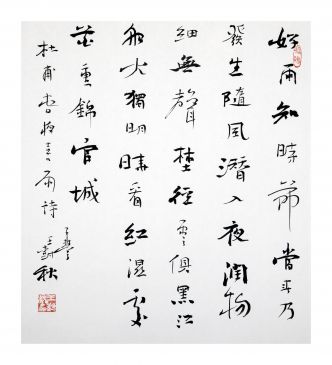 好雨知時節當春乃
發生隨風潛入夜潤物
細無聲埜徑云俱黑江
船火獨明曉看紅濕處
花重錦官城
杜甫春夜喜雨詩
秋